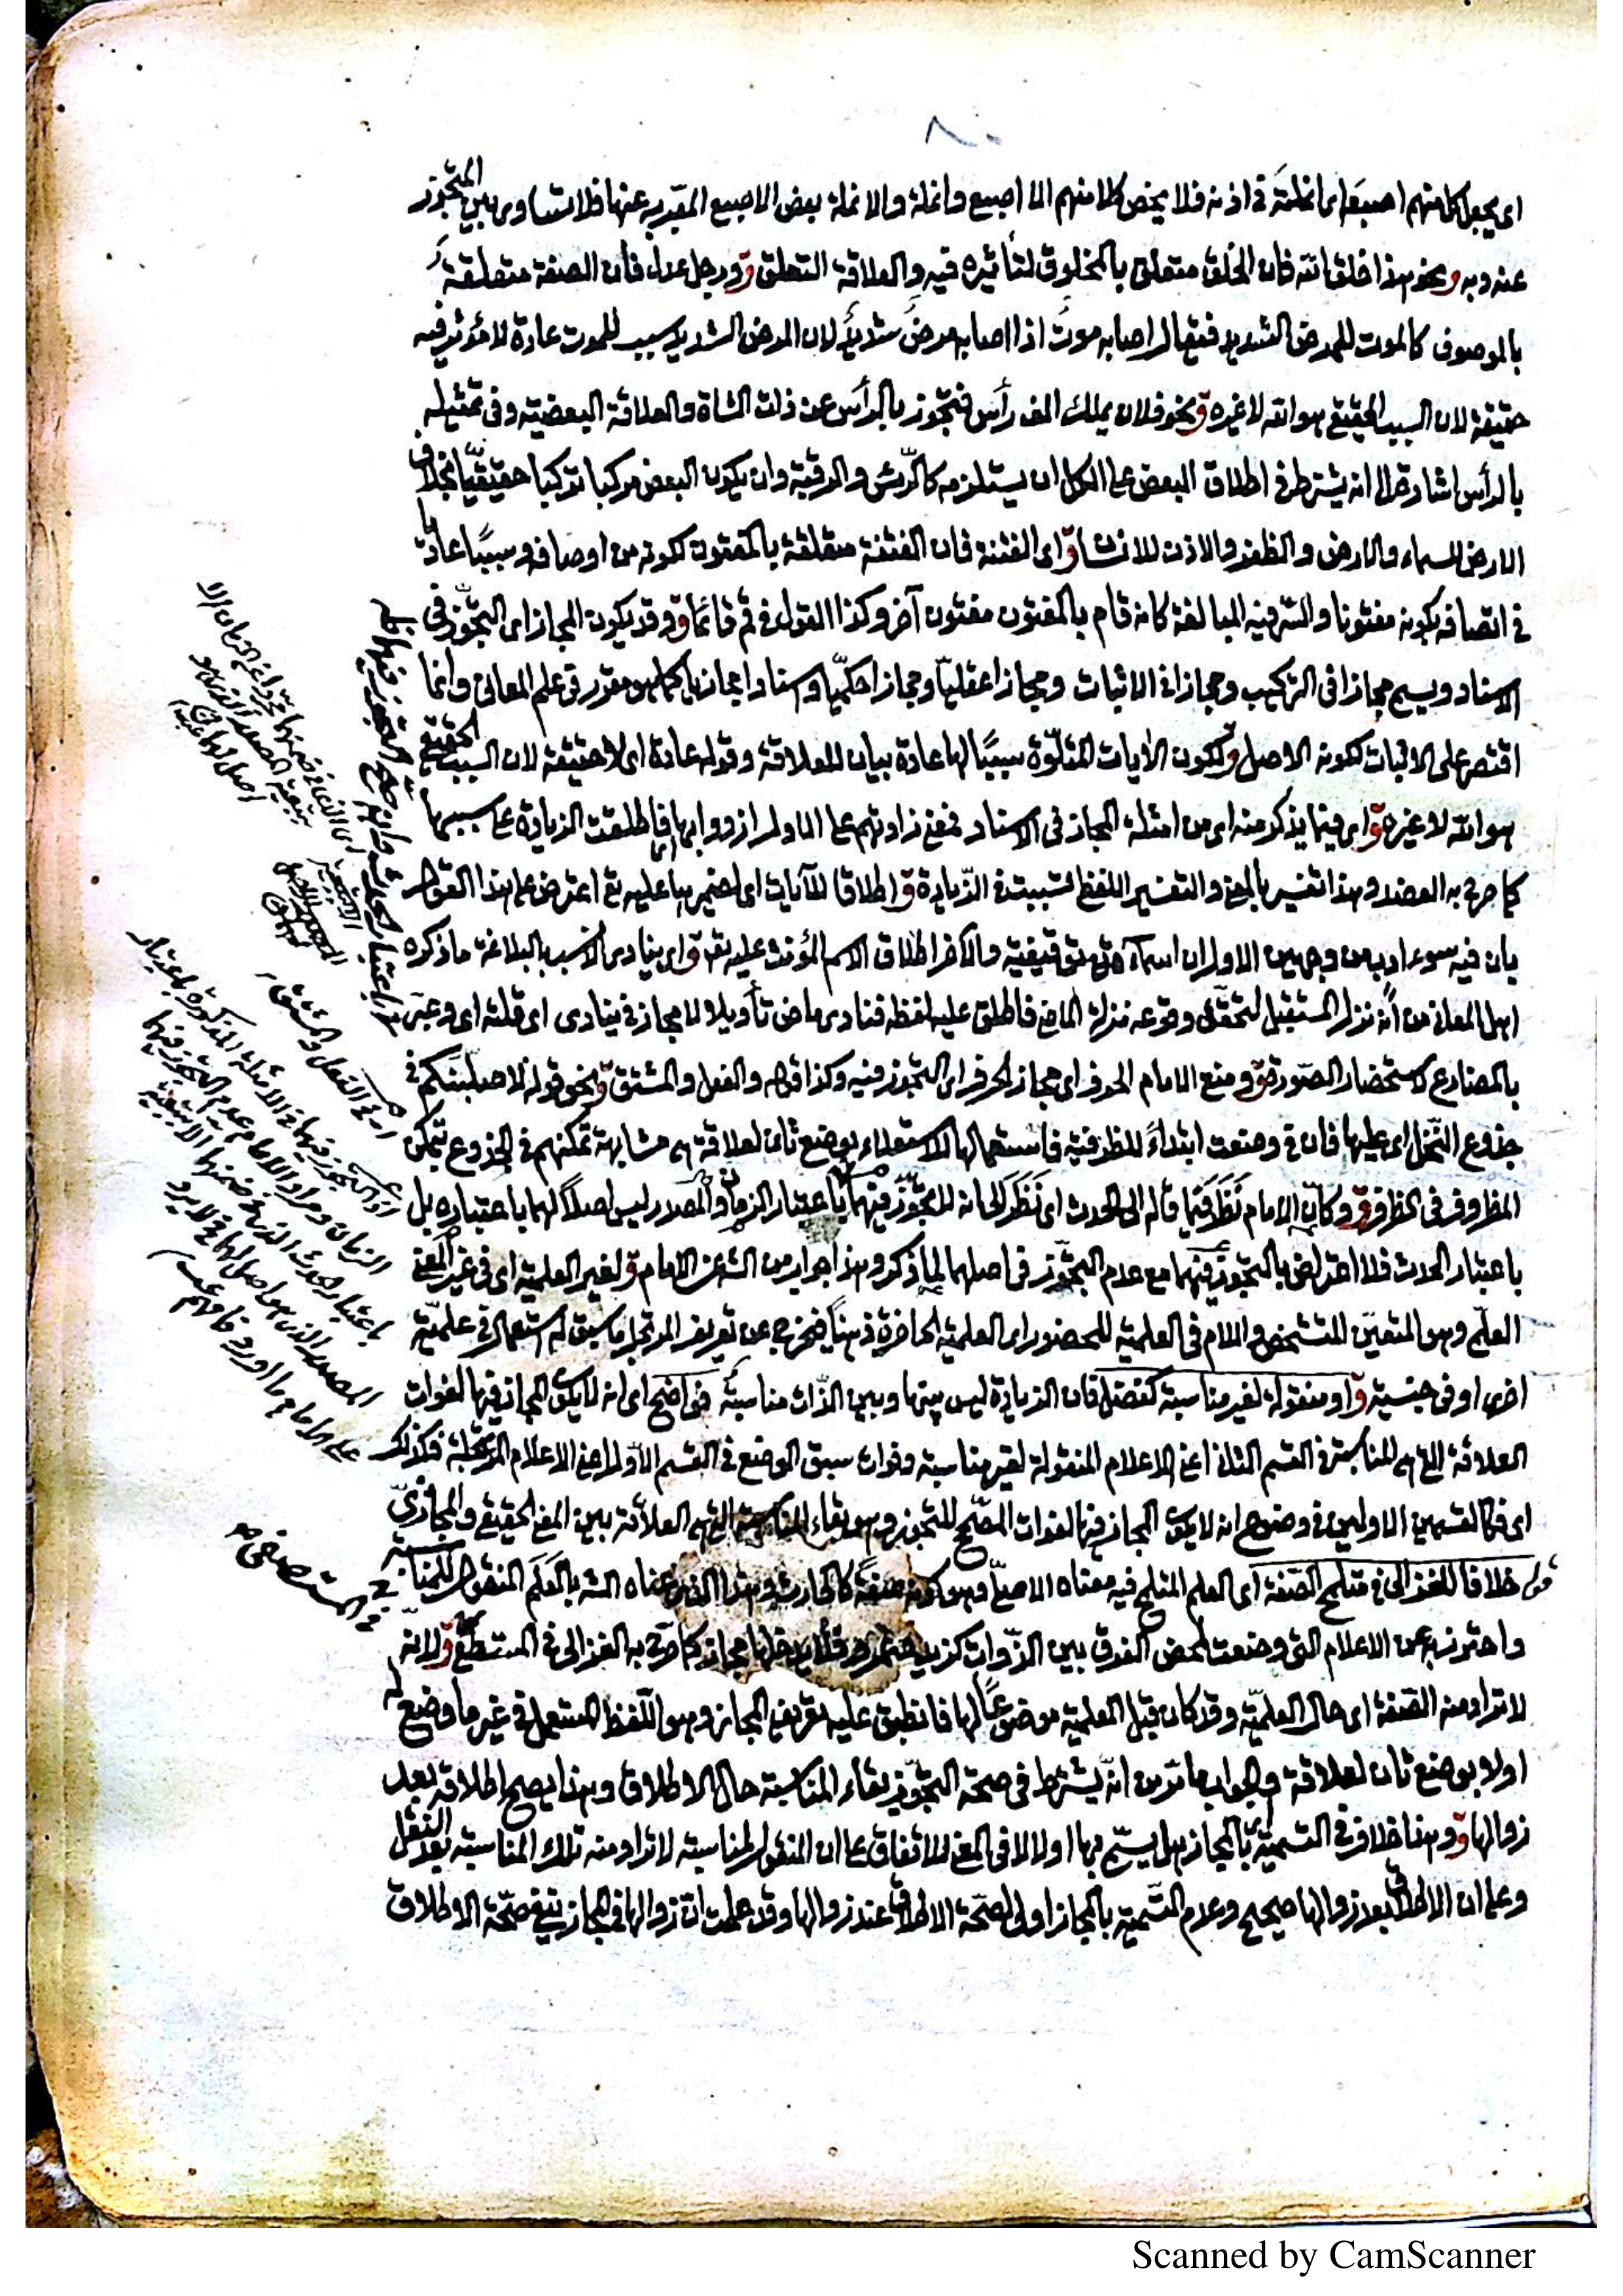 ٨٠
اى يجعل كل منهم اصبعه اى انملته فى اذنه فلا يخص كلا منهم الا اصبع وانملة والانملة بعض الاصبع المعبر به عنها فلا تساوى بين المتجوز
عنه وبه ونحو هذا خلق الله فان الخلق متعلق بالمخلوق لتأثيره فيه والعلاقة التعلق قو ورجل عدل فان الصفة متعلقة
بالموصوف كالموت للمرض الشديد فيقال اصابه موت اذا اصابه مرض شديد لان المرض الشديد سبب للموت عادة لا مؤثر فيه
حقيقة لان السبب الحقيقى هو الله لا غيره قو نحو فلان يملك الف رأس فتجوز بالرأس عن ذات الشاة والعلاقة البعضية وفى تمثيله
بالرأس اشارة الى انه يشترط فى اطلاق البعض على الكل ان يستلزمه كالرأس والرقبة وان يكون البعض مركبا تركيبا حقيقيا بخلاف
الارض للسماء والارض والظفر والاذن للانسان قو اى الفتنة فان الفتنة متعلقة بالمفتون لكونه من اوصافه وسببا عاديا
فى اتصافه بكونه مفتونا والسر فيه المبالغة كانه قام بالمفتون مفتون آخر وكذا القول فى قم قائما قو وقد يكون المجاز اى التجوز فى
الاسناد ويسمى مجازا فى التركيب ومجازا فى الاثبات ومجازا عقليا ومجازا حكميا واسنادا مجازيا كما هو مقرر فى علم المعانى وانما
اقتصر على الاثبات لكونه الاصل قو لكون الآيات المتلوة سببا لها عادة بيان للعلاقة وقوله عادة اى لا حقيقة لان السبب الحقيقى
هو الله لا غيره قو اى فيما يذكر منه اى من امثلة المجاز فى الاسناد فمعنى زادتهم على الاول ازدادوا بها فاطلقت الزيادة على سببها
كما صرح به العضد وهذا تفسير بالمعنى والتفسير اللفظى تسببت فى الزيادة قو اطلاقا للآيات اى لضميرها عليه تع اعترض على هذا القول
بان فيه سوء ادب من وجهين الاول ان اسماءه تع توقيفية والآخر اطلاق الاسم المؤنث عليه تع قو اى ينادى الانسب بالبلاغة ما ذكره
اهل المعانى من أنه نزل المستقبل لتحقق وقوعه منزلة الماضى فاطلق عليه لفظه فنادى ماض تأويلا ولا مجاز فى ينادى اى قلته اى وعبر
بالمضارع لاستحضار الصورة قو ومنع الامام الحرف اى مجاز الحرف اى التجوز فيه وكذا قوله والفعل والمشتق قو نحو قوله لاصلبنكم فى
جذوع النخل اى عليها فان فى وضعت ابتداء للظرفية فاستعمالها للاستعلاء بوضع ثان لعلاقة هى مشابهة تمكنهم فى الجذوع بتمكن
المظروف فى الظرف قو وكان الامام نظر فيما قاله الى الحدث اى نظر الى انه لا تجوز فيهما باعتبار الزمان والمصدر ليس اصلا لهما باعتباره بل
باعتبار الحدث فلا اعتراض بالتجوز فيهما مع عدم التجوز فى اصلهما لما ذكر وهذا جواب من الش عن الامام قو لغير العلمية اى فى غير المعنى
العلمى وهو المتعين المتشخص واللام فى العلمية للحضور اى العلمية الحاضرة ذهنا فيخرج عن تعريف المرتجل ما سبق له استعمال فى علمية
اخرى او فى جنسية قو او منقولة لغير مناسبة كفضل فان الزيادة ليس بينها وبين الذات مناسبة قو فواضح اى انه لا يكون المجاز فيها لفوات
العلاقة التى هى المناسبة فى القسم الثانى اعنى الاعلام المنقولة لغير مناسبة وفوات سبق الوضع فى القسم الاول اعنى الاعلام المرتجلة فكذلك
اى فكالقسمين الاولين فى وضوح انه لا يكون المجاز فيها لفوات المصحح للتجوز وهو بقاء المناسبة التى هى العلاقة بين المعنى الحقيقى والمجازى
قوله خلافا للغزالى فى متلمح الصفة اى العلم المتلمح فيه معناه الاصلى وهو كونه صفة كالحارث وهذا القسم عناه الش بالعلم المنقول للمناسبة
واحترز به عن الاعلام التى وضعت لمحض الفرق بين الذوات كزيد وعمرو فلا يدخلها مجاز كما صرح به الغزالى فى المستصفى قو لانه
لا تراد منه الصفة اى حال العلمية وقد كان قبل العلمية موضوعا لها فانطبق عليه تعريف المجاز وهو اللفظ المستعمل فى غير ما وضع له
اولا بوضع ثان لعلاقة والجواب ما مر من انه يشترط فى صحة التجوز بقاء المناسبة حال الاطلاق وهذا يصح اطلاقه بعد
زوالها قو وهذا خلاف فى التسمية أى بالمجاز هل يسمى بها اولا لا فى المعنى للاتفاق على ان المنقول لمناسبة لا تراد منه تلك المناسبة بعد النقل
وعلى ان الاطلاق بعد زوالها صحيح وعدم التسمية بالمجاز اولى لصحة الاطلاق عند زوالها وقد علمت ان زوالها فى المجاز ينفى صحة الاطلاق
اى فى الفعل والمشتق
او التجوز فيها فى الامثلة المذكورة باعتبار
الزمان ومراد الامام عدم التجوز فيها
باعتبار الحدث الذى فى ضمنها الا بتبعية
المصدر الذى هو اصل لها فلا يرد
على الامام ما اورد فافهم
فى المستصفى
Scanned by CamScanner